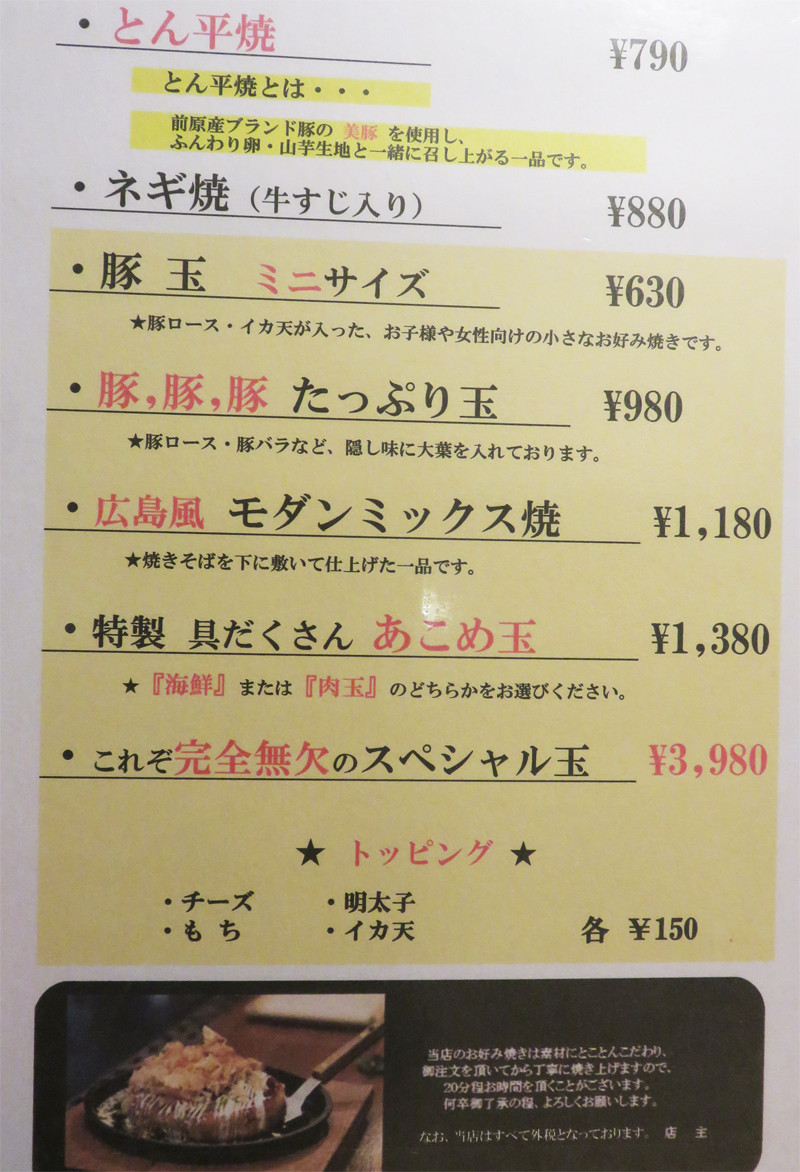 ・とん平焼 ¥790
とん平焼とは・・・
前原産ブランド豚の 美豚 を使用し、
ふんわり卵・山芋生地と一緒に召し上がる一品です。
・ネギ焼（牛すじ入り） ¥880
・豚 玉 ミニサイズ ¥630
★豚ロース・イカ天が入った、お子様や女性向けの小さなお好み焼きです。
・豚,豚,豚 たっぷり玉 ¥980
★豚ロース・豚バラなど、隠し味に大葉を入れております。
・広島風 モダンミックス焼 ¥1,180
★焼きそばを下に敷いて仕上げた一品です。
・特製 具だくさん あこめ玉 ¥1,380
★『海鮮』または『肉玉』のどちらかをお選びください。
・これぞ完全無欠のスペシャル玉 ¥3,980
★ トッピング ★
・チーズ ・明太子
・もち ・イカ天 各 ¥150
当店のお好み焼きは素材にとことんこだわり、
御注文を頂いてから丁寧に焼き上げますので、
20分程お時間を頂くことがございます。
何卒御了承の程、よろしくお願いします。
なお、当店はすべて外税となっております。 店 主